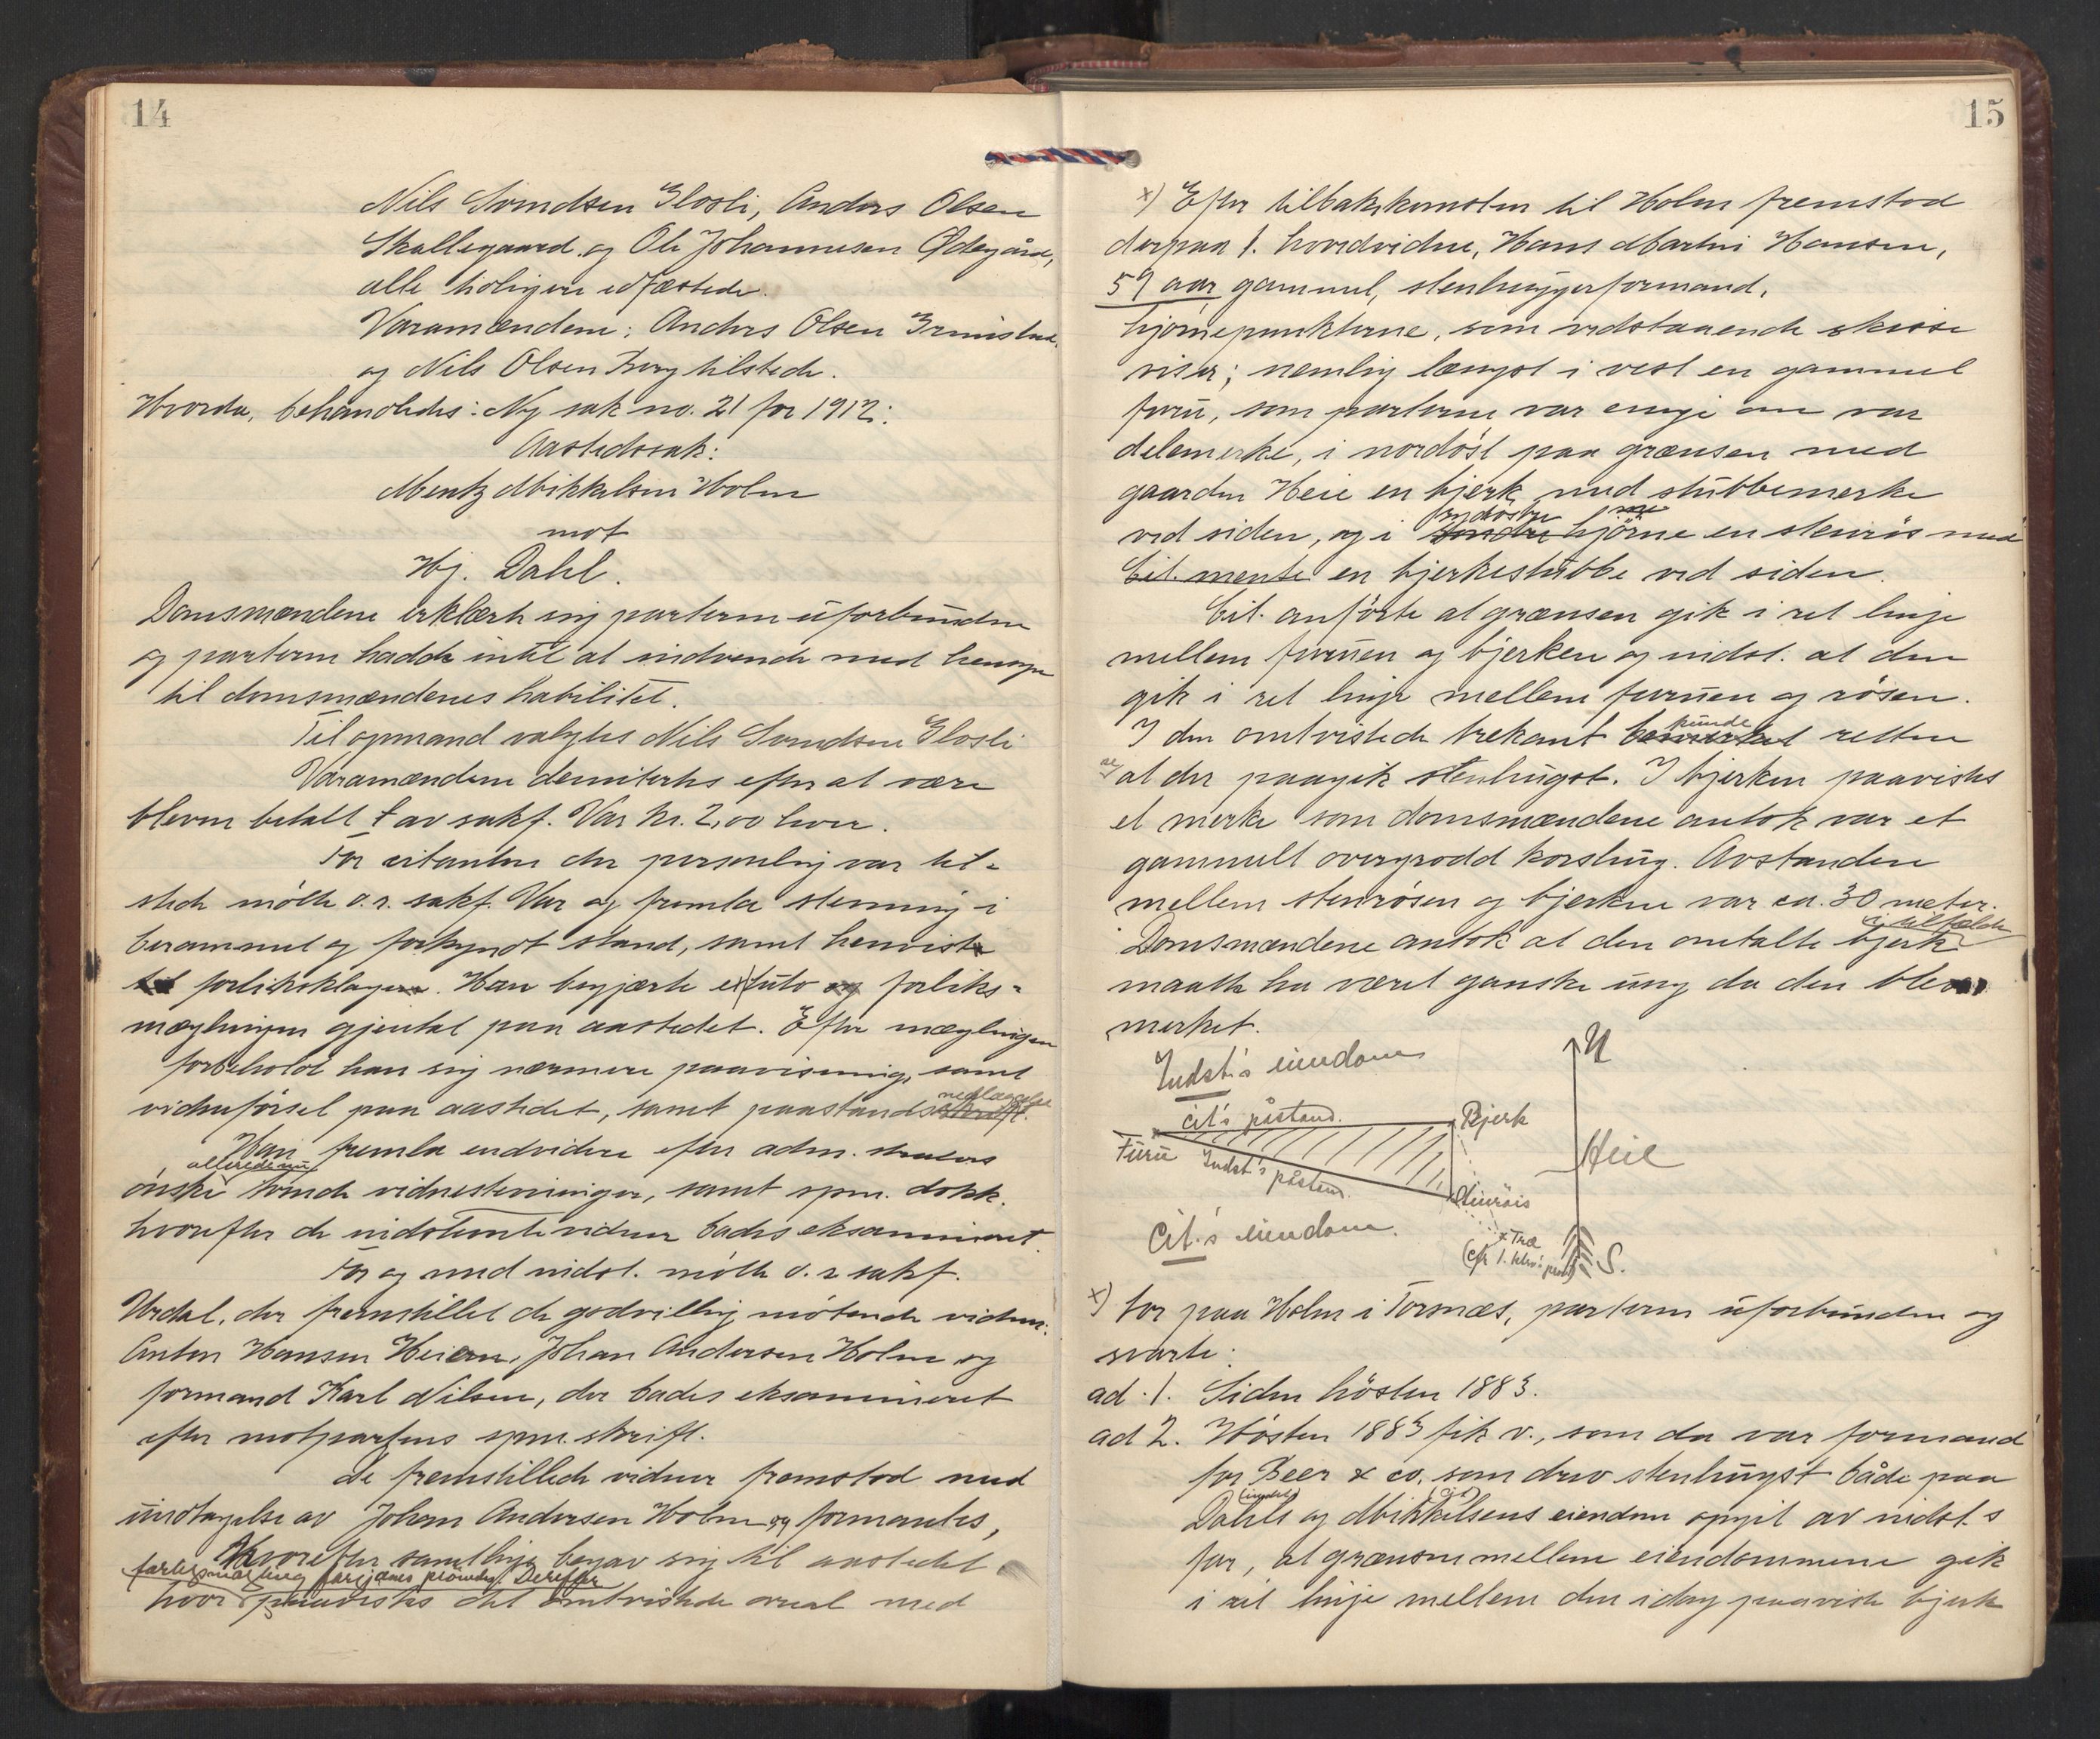 14
Nils Svendsen Glosli, Anders Olsen
Skallegaard og Ole Johannesen Ødegård,
alle tidligere edfæstede.
Varamændene: Anders Olsen
og Nils Olsen Berg tilstede.
Hvorda, behandledes: Ny sak no. 21 for 1912:
Aastedssak:
Mentz Mikkelsen Holm
mot
Hj. Dahl.
Domsmændene erklærte sig parterne uforbundne
og parterne hadde intet at indvende med hensyn
til domsmændenes habilitet.
Til opmand valgtes Nils Svendsen Glosli
Varamændene demitertes efter at være
bleven betalt av sakf. Var kr. 2,00 hver.
For citanten der personlig var til-
stede mötte o.r. sakf. Var og fremla stevning i
berammet og forkyndt stand, samt henviste
til forliksklagen. Han begjærte ex tuto og forliks-
mæglingen gjentat paa aastedet. Efter mæglingen
forbeholdt han sig nærmere paavisning, samt
nedlæggelse
vidneförsel paa aastedet, samt paastands
Han fremla endvidere efter adm.
allerede nu
önske tvende vidnestevninger, samt spm. dokk.
hvorefter de indstevnte vidner bades eksamineret.
For og med indst. mötte o.r. sakf.
Urdal, der fremstillet de godvillig mötende vidner:
Anton Hansen Heien, Johan Andersen Holm og
formand Karl Nilsen, der bades eksamineret
efter motpartens spm. skrift.
De fremstillede vidner fremstod med
undtagelse av Johan Andersen Holm og formantes,
Hvorefter samtlige begav sig til aastedet
forliksmægling forgjæves prövedes. Derefter
hvor paavistes det omtvistede areal med
15
x) Efter tilbakekomsten til Holm fremstod
derpaa 1. hovedvidne, Hans Martin Hansen,
59 aar gammel, stenhuggerformand,
hjörnepunkterne, som vedstaaende skisse
viser; nemlig længst i vest en gammel
furu, som parterne var enige om var
delemerke, i nordöst paa grænsen med
gaarden Heie en bjerk med stubbemerke
sydöstre
ved siden, og i söndre hjörne en stenrös med
cit. mente en bjerkestubbe ved siden.
Cit. anförte at grænsen gik i ret linje
mellem furuen og bjerken og indst. at den
gik i ret linje mellem furuen og rösen.
kunde
I den omtvistede trekant bemerket retten
at der paagik stenhugst. I bjerken paavistes
et merke som domsmændene antok var et
gammelt overgrodd korshug. Avstanden
mellem stenrösen og bjerken var ca. 30 meter.
i tilfælde
Domsmændene antok at den omtalte bjerk
maatte ha været ganske ung da den blev
merket.
Indst's eiendom
N
cit's påstand.
Bjerk
Furu
Indst's påstand.
Heie
Stenröis
Cit.'s eiendom.
x Træ
(cfr 1. hdv.'s prov)
S.
x) bor paa Holm i Torsnæs, parterne uforbunden og
svarte:
ad. 1. Siden hösten 1883.
ad 2. Hösten 1883 fik v., som da var formand
for Beer & co. som drev stenhugst både paa
(indst) (cit)
Dahls og Mikkelsens eiendom opgit av indst.s
far, at grænsen mellem eiendommene gik
i ret linje mellem den idag paaviste bjerk